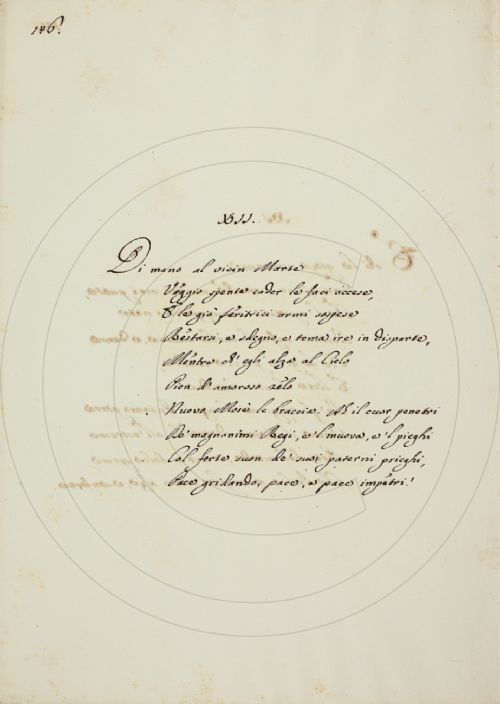 146.
XII.
Di mano al vicin Marte
Veggio spente cader le faci accese,
E le già feritrici armi sospese
Restarsi, e sdegno, e tema ire in disparte,
Mentre ch' egli alza al Cielo
Pien d'amoroso zelo
Nuovo Mosè le braccia. Ah il cuor penetri
De' magnanimi Regi, e 'l muova, e 'l pieghi
Col forte suon de' suoi paterni prieghi,
Pace gridando, pace, e pace impetri!